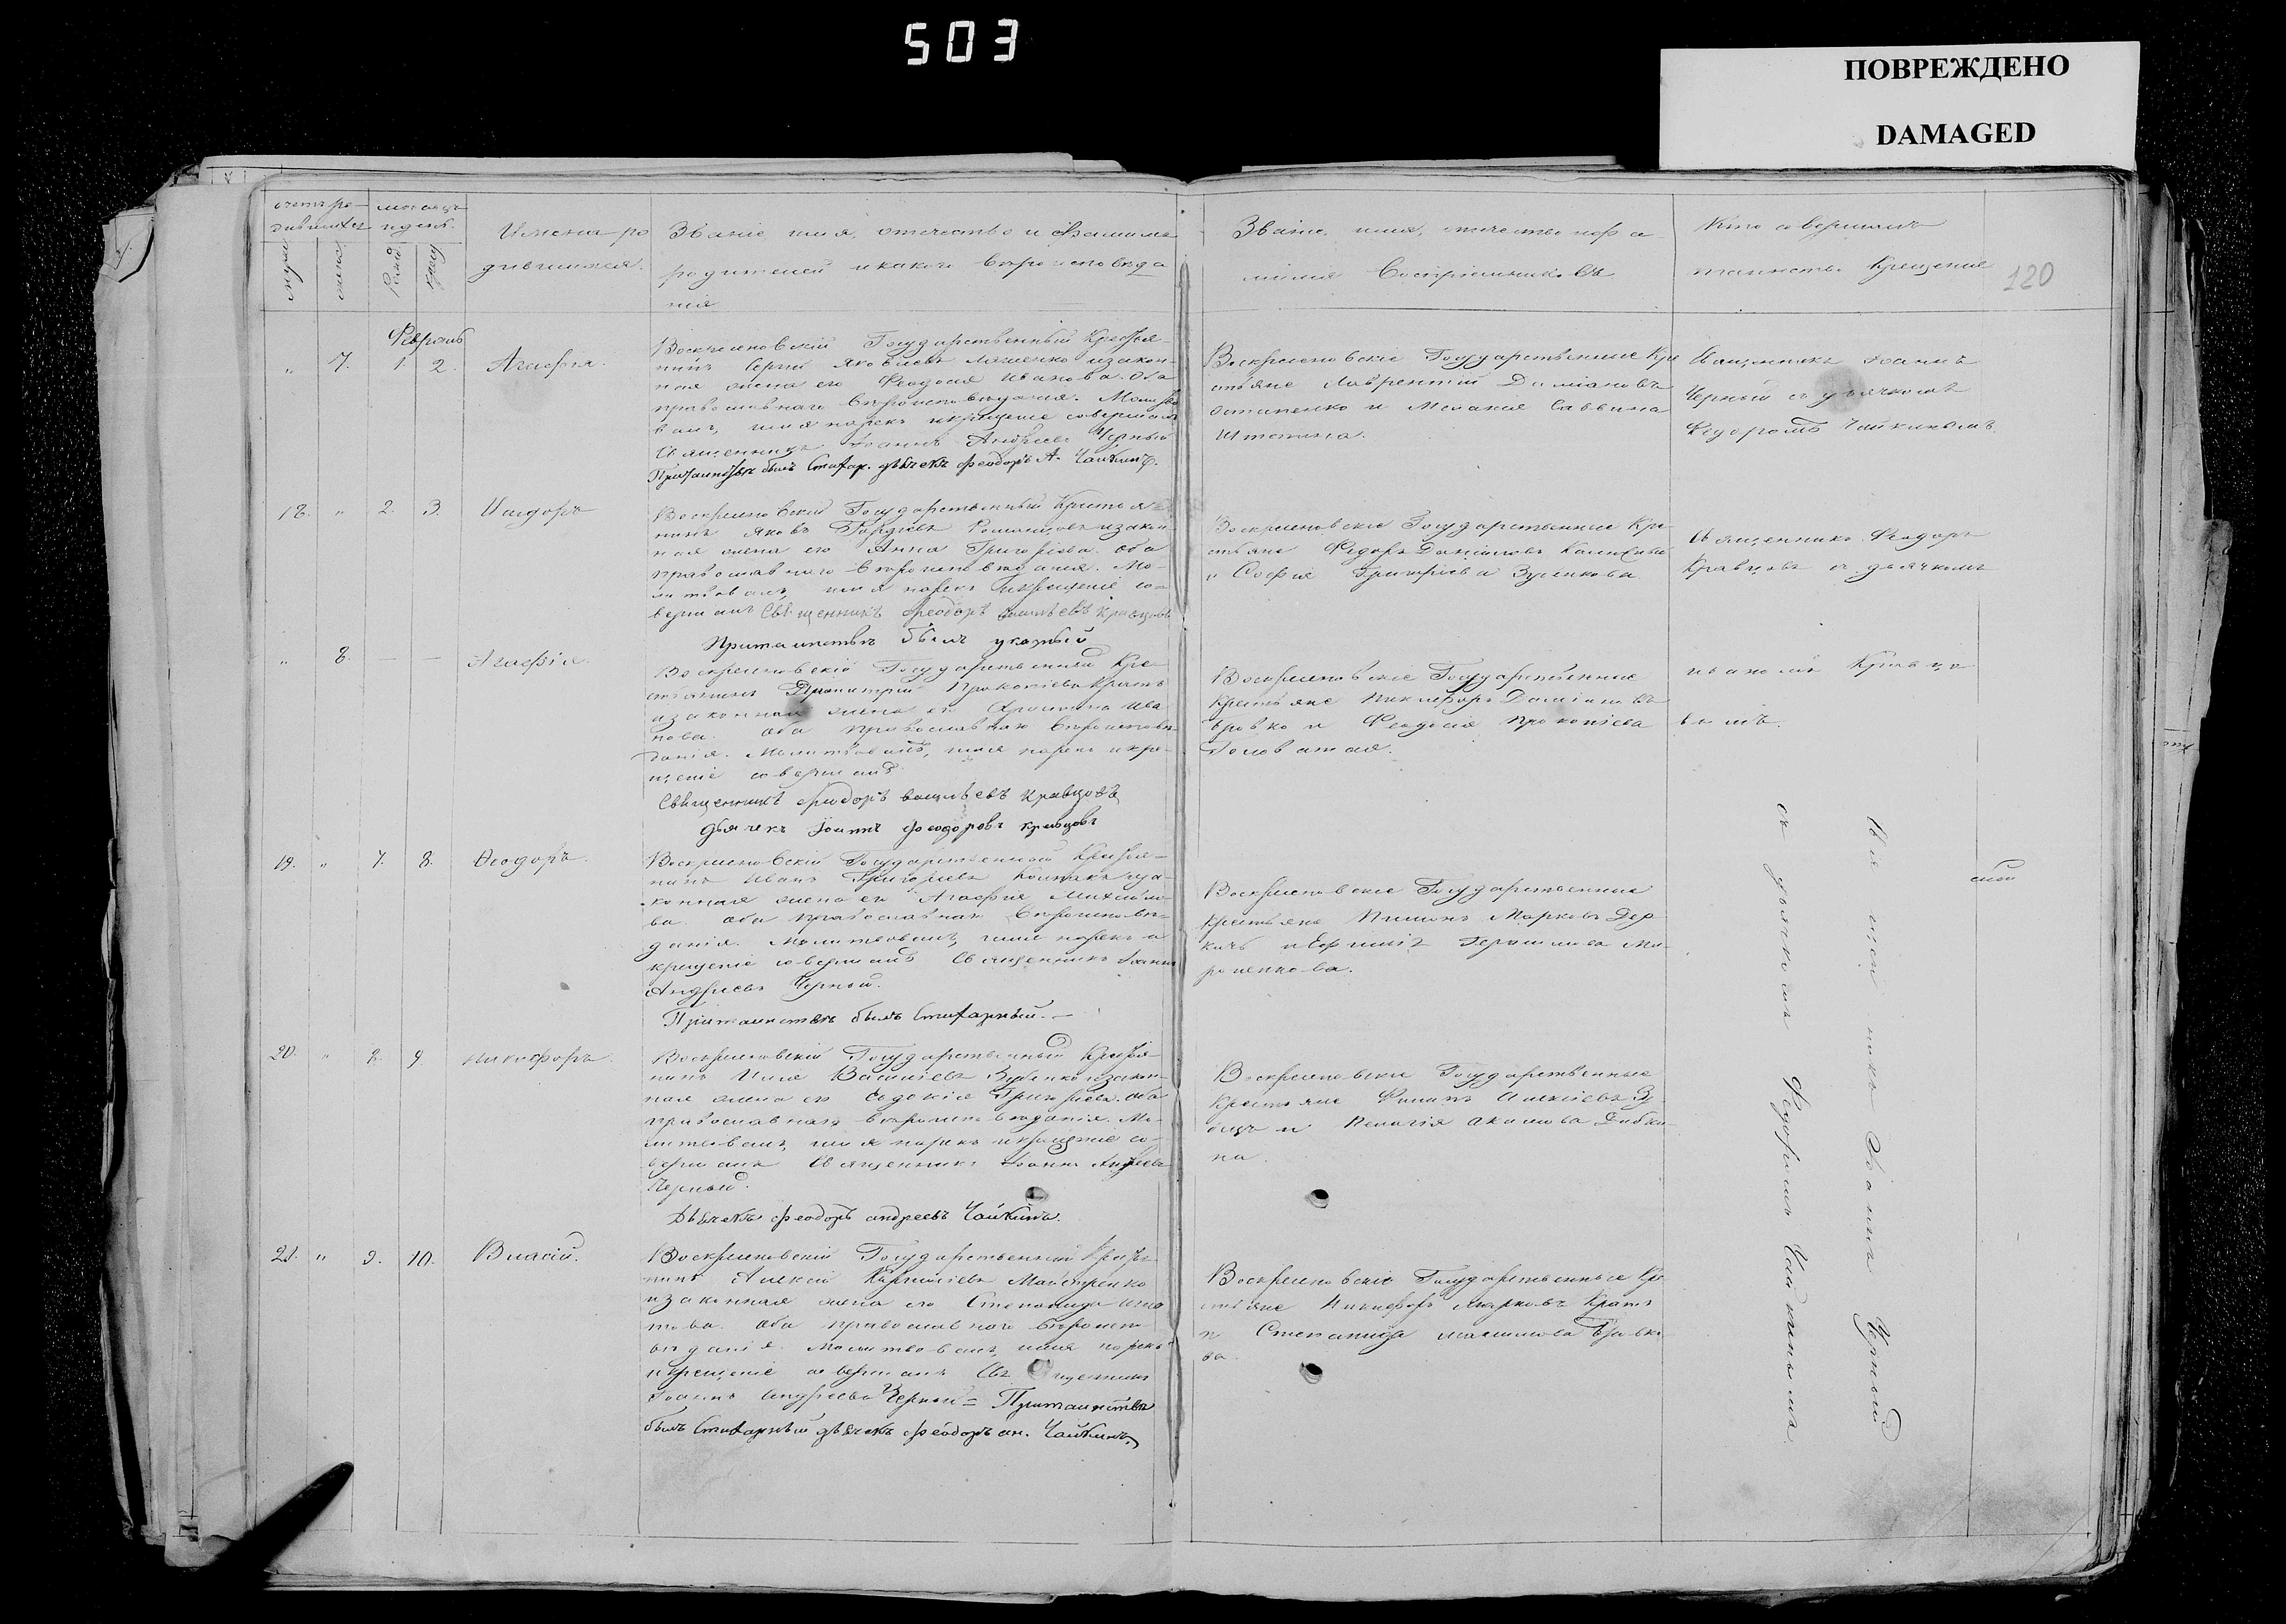 503
ПОВРЕЖДЕНО
DAMAGED
счетъ ро-
дившихся
месяцъ
и день.
Имена ро
дившихся.
Званіе имя, отчество и Фамилія
родителей и какого вѣроисповѣда
нія
Званіе, имя, отчество и фа-
милія Воспріемниковъ
Кто совершалъ
таинство Крещенія
120
Февраль
" 7. 1. 2. Агафія.
Воскресеновскій Государственный Крестья-
нинъ Сергій Яковлевъ Ляшенко и закон-
ная жена его Феодосія Иванова. Оба
православнаго вѣроисповѣданія. Молитво
валъ, имя нарекъ и крещеніе совершалъ
Священникъ Іоаннъ Андреевъ Черный
При таинствѣ былъ Стихар. дьячекъ Феодоръ А. Чайкинъ.
Воскресеновскіе Государственные Кре
стьяне Лаврентій Даміановъ
Остапенко и Меланія Саввина
Священникъ Іоаннъ
Черный съ дьячкомъ
Федоромъ Чайкинымъ.
18. " 2. 3. Исидоръ
Воскресеновскій Государственный Крестья
нинъ Яковъ Гордіевъ и закон
ная жена его Анна Григоріева. Оба
православнаго вѣроисповѣданія. Мо-
литвовалъ, имя нарекъ и крещеніе со-
вершалъ Священникъ Феодоръ Васильевъ Кравцовъ
При таинствѣ былъ указный
Воскресеновскіе Государственные Кре-
стьяне Федоръ Даниловъ
и Софія Григоріева Зуенкова
Священникъ Феодоръ
Кравцовъ съ дьячкомъ
" 8. — — Агафія.
Воскресеновскій Государственный Кре-
стьянинъ Димитрій Прокопіевъ Кратъ
и законная жена его Христина Ива
нова. Оба православнаго вѣроисповѣ-
данія. Молитвовалъ, имя нарекъ и кре-
щеніе совершалъ
Священникъ Феодоръ Васильевъ Кравцовъ
Дьячекъ Іоаннъ Феодоровъ Кривцовъ
Воскресеновскіе Государственные
Крестьяне Никифоръ Даміановъ
Бровко и Феодосія Прокопіева
Головатая.
Иваномъ Кривцо
вымъ.
19. " 7. 8. Феодоръ.
Воскресеновскій Государственный Крестья-
нинъ Иванъ Григорьевъ и за-
конная жена его Агафія Михайло-
ва. Оба православнаго вѣроисповѣ-
данія. Молитвовалъ, имя нарекъ и
крещеніе совершалъ Священникъ Іоаннъ
Андреевъ Черный.
При таинствѣ былъ Стихарный. —
Воскресеновскіе Государственные
Крестьяне Пименъ Марковъ Дер
качъ и Ефимія Герасимова Ми-
роненкова.
20. " 8. 9. Никифоръ.
Воскресеновскій Государственный Крестья-
нинъ Илія Василіевъ Зубенко и закон-
ная жена его Евдокія Григоріева. Оба
православнаго вѣроисповѣданія. Мо-
литвовалъ, имя нарекъ и крещеніе со-
вершалъ Священникъ Іоаннъ Андреевъ
Черный.
Дьячекъ Феодоръ Андреевъ Чайкинъ.
Воскресеновскіе Государственные
Крестьяне Филипъ Алексіевъ
и Пелагія Акимова Бабки-
на.
21. " 9. 10. Власій.
Воскресеновскій Государственный Крестья
нинъ Алексій Майстренко
и законная жена его Степанида Игна
това. Оба православнаго вѣроиспо
вѣданія. Молитвовалъ, имя нарекъ
и крещеніе совершалъ Священникъ
Іоаннъ Андреевъ Черный = При таинствѣ
былъ Стихарный дьячекъ Феодоръ Ан. Чайкинъ.
Воскресеновскіе Государственные Кре
стьяне Никифоръ Марковъ Кратъ
и Степанида Максимова Бровко-
ва.
Іоаннъ Черный
съ дьячкомъ Федоромъ Чайкинымъ.